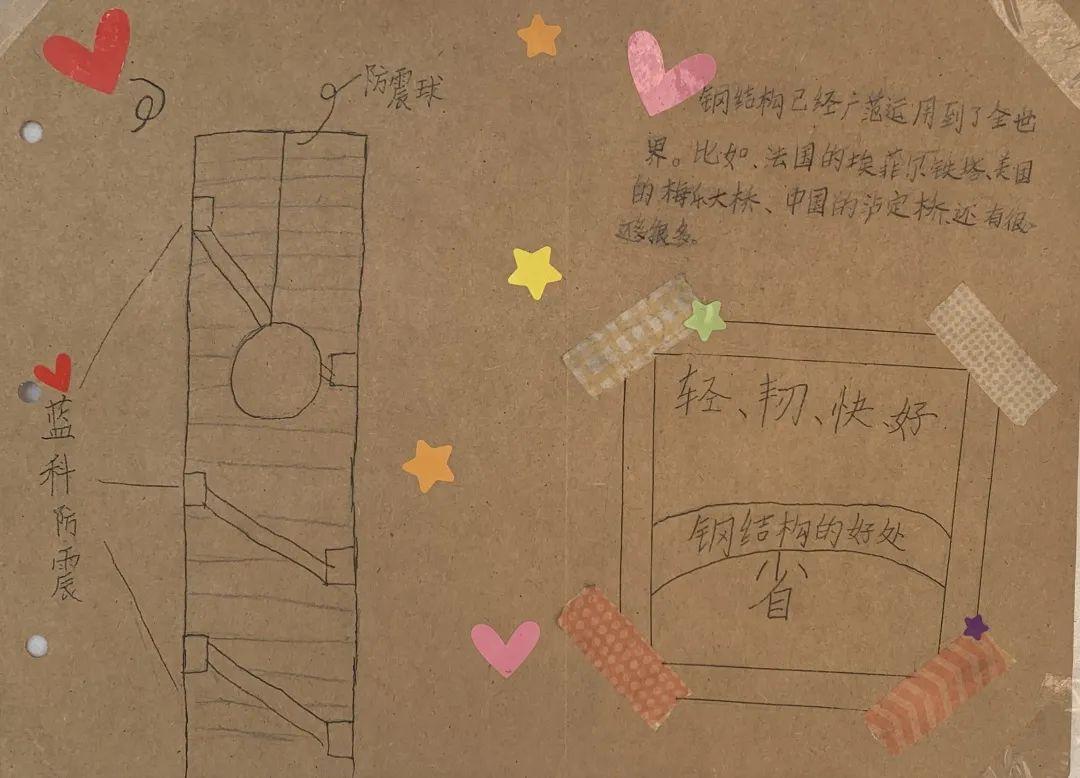 防震球
蓝科防震
钢结构已经广范运用到了全世
界。比如、法国的埃菲尔铁塔、美国
的梅乐大桥、中国的泸定桥、还有很
多很多。
轻、韧、快、好
钢结构的好处
省